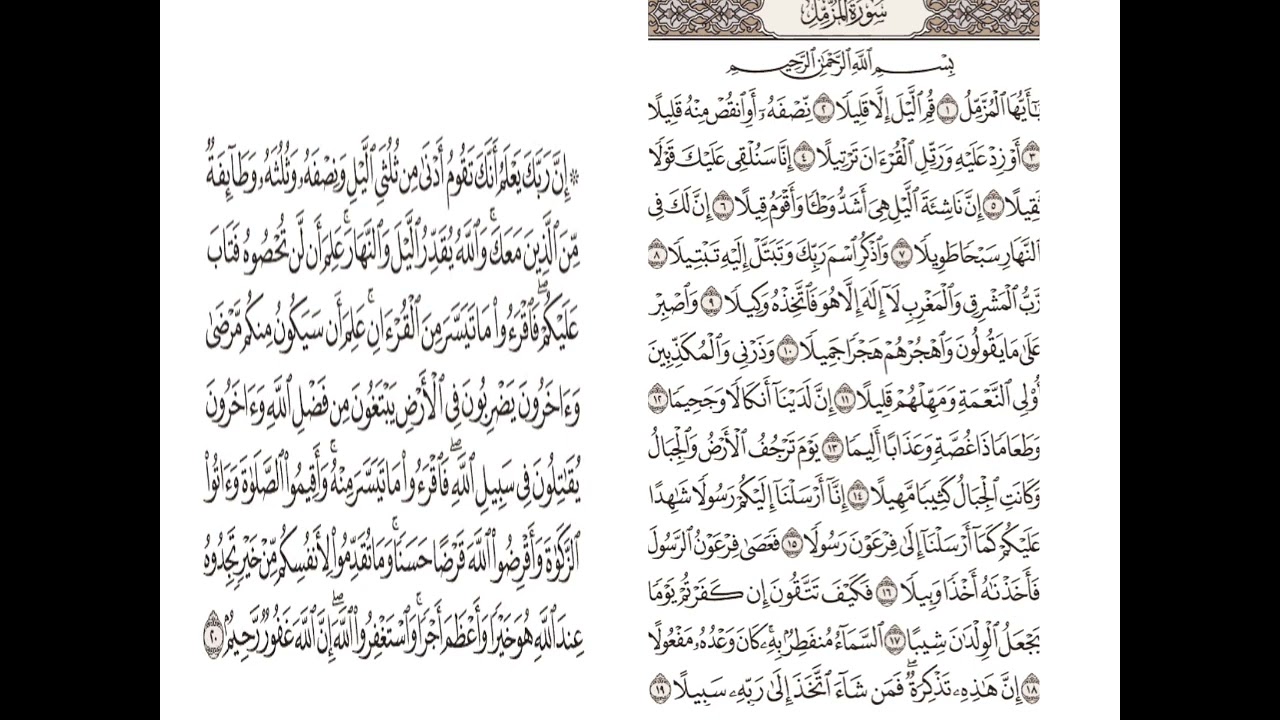 سُورَةُ المُزَّمِّلِ
بِسْمِ ٱللَّهِ ٱلرَّحْمَٰنِ ٱلرَّحِيمِ
يَٰٓأَيُّهَا ٱلْمُزَّمِّلُ ١ قُمِ ٱلَّيْلَ إِلَّا قَلِيلًا ٢ نِّصْفَهُۥٓ أَوِ ٱنقُصْ مِنْهُ قَلِيلًا
٣ أَوْ زِدْ عَلَيْهِ وَرَتِّلِ ٱلْقُرْءَانَ تَرْتِيلًا ٤ إِنَّا سَنُلْقِى عَلَيْكَ قَوْلًا
ثَقِيلًا ٥ إِنَّ نَاشِئَةَ ٱلَّيْلِ هِىَ أَشَدُّ وَطْـًٔا وَأَقْوَمُ قِيلًا ٦ إِنَّ لَكَ فِى
ٱلنَّهَارِ سَبْحًا طَوِيلًا ٧ وَٱذْكُرِ ٱسْمَ رَبِّكَ وَتَبَتَّلْ إِلَيْهِ تَبْتِيلًا ٨
رَّبُّ ٱلْمَشْرِقِ وَٱلْمَغْرِبِ لَآ إِلَٰهَ إِلَّا هُوَ فَٱتَّخِذْهُ وَكِيلًا ٩ وَٱصْبِرْ
عَلَىٰ مَا يَقُولُونَ وَٱهْجُرْهُمْ هَجْرًا جَمِيلًا ١٠ وَذَرْنِى وَٱلْمُكَذِّبِينَ
أُو۟لِى ٱلنَّعْمَةِ وَمَهِّلْهُمْ قَلِيلًا ١١ إِنَّ لَدَيْنَآ أَنكَالًا وَجَحِيمًا ١٢
وَطَعَامًا ذَا غُصَّةٍ وَعَذَابًا أَلِيمًا ١٣ يَوْمَ تَرْجُفُ ٱلْأَرْضُ وَٱلْجِبَالُ
وَكَانَتِ ٱلْجِبَالُ كَثِيبًا مَّهِيلًا ١٤ إِنَّآ أَرْسَلْنَآ إِلَيْكُمْ رَسُولًا شَٰهِدًا
عَلَيْكُمْ كَمَآ أَرْسَلْنَآ إِلَىٰ فِرْعَوْنَ رَسُولًا ١٥ فَعَصَىٰ فِرْعَوْنُ ٱلرَّسُولَ
فَأَخَذْنَٰهُ أَخْذًا وَبِيلًا ١٦ فَكَيْفَ تَتَّقُونَ إِن كَفَرْتُمْ يَوْمًا
يَجْعَلُ ٱلْوِلْدَٰنَ شِيبًا ١٧ ٱلسَّمَآءُ مُنفَطِرٌۢ بِهِۦ ۚ كَانَ وَعْدُهُۥ مَفْعُولًا
١٨ إِنَّ هَٰذِهِۦ تَذْكِرَةٌ ۖ فَمَن شَآءَ ٱتَّخَذَ إِلَىٰ رَبِّهِۦ سَبِيلًا ١٩
۞ إِنَّ رَبَّكَ يَعْلَمُ أَنَّكَ تَقُومُ أَدْنَىٰ مِن ثُلُثَىِ ٱلَّيْلِ وَنِصْفَهُۥ وَثُلُثَهُۥ وَطَآئِفَةٌ
مِّنَ ٱلَّذِينَ مَعَكَ ۚ وَٱللَّهُ يُقَدِّرُ ٱلَّيْلَ وَٱلنَّهَارَ ۚ عَلِمَ أَن لَّن تُحْصُوهُ فَتَابَ
عَلَيْكُمْ ۖ فَٱقْرَءُوا۟ مَا تَيَسَّرَ مِنَ ٱلْقُرْءَانِ ۚ عَلِمَ أَن سَيَكُونُ مِنكُم مَّرْضَىٰ
وَءَاخَرُونَ يَضْرِبُونَ فِى ٱلْأَرْضِ يَبْتَغُونَ مِن فَضْلِ ٱللَّهِ وَءَاخَرُونَ
يُقَٰتِلُونَ فِى سَبِيلِ ٱللَّهِ ۖ فَٱقْرَءُوا۟ مَا تَيَسَّرَ مِنْهُ ۚ وَأَقِيمُوا۟ ٱلصَّلَوٰةَ وَءَاتُوا۟
ٱلزَّكَوٰةَ وَأَقْرِضُوا۟ ٱللَّهَ قَرْضًا حَسَنًا ۚ وَمَا تُقَدِّمُوا۟ لِأَنفُسِكُم مِّنْ خَيْرٍ تَجِدُوهُ
عِندَ ٱللَّهِ هُوَ خَيْرًا وَأَعْظَمَ أَجْرًا ۚ وَٱسْتَغْفِرُوا۟ ٱللَّهَ ۖ إِنَّ ٱللَّهَ غَفُورٌ رَّحِيمٌۢ ٢٠